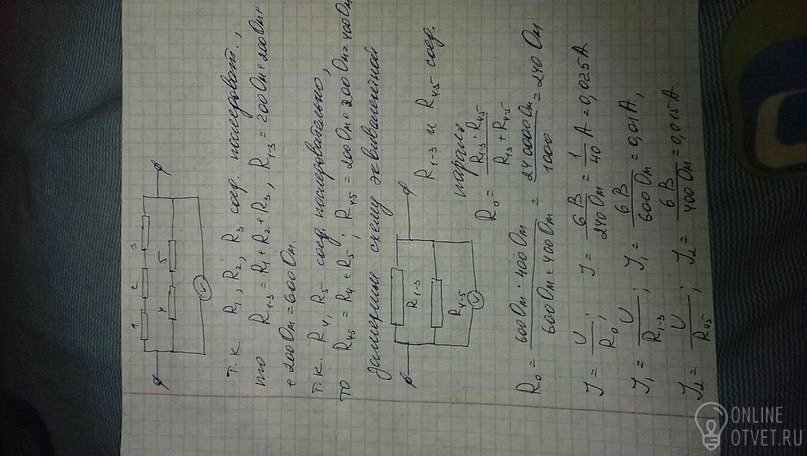 1 2 3
4 5
V
т.к. R1, R2, R3 соед. последоват.,
то R1-3 = R1 + R2 + R3, R1-3 = 200 Ом + 200 Ом +
+ 200 Ом = 600 Ом.
т.к. R4, R5 соед. последовательно,
то R45 = R4 + R5; R45 = 200 Ом + 200 Ом = 400 Ом
заменим схему эквивалентной
R1-3
R4-5
V
R1-3 и R45 соед.
паралл.
R0 = R1-3 · R45 / R13 + R45
R0 = 600 Ом · 400 Ом / 600 Ом + 400 Ом = 240000 Ом / 1000 = 240 Ом
J = U / R0; J = 6 В / 240 Ом = 1 / 40 А = 0,025 А.
J1 = U / R1-3; J1 = 6 В / 600 Ом = 0,01 А,
J2 = U / R45; J2 = 6 В / 400 Ом = 0,015 А.
ONLINE
OTVET.RU